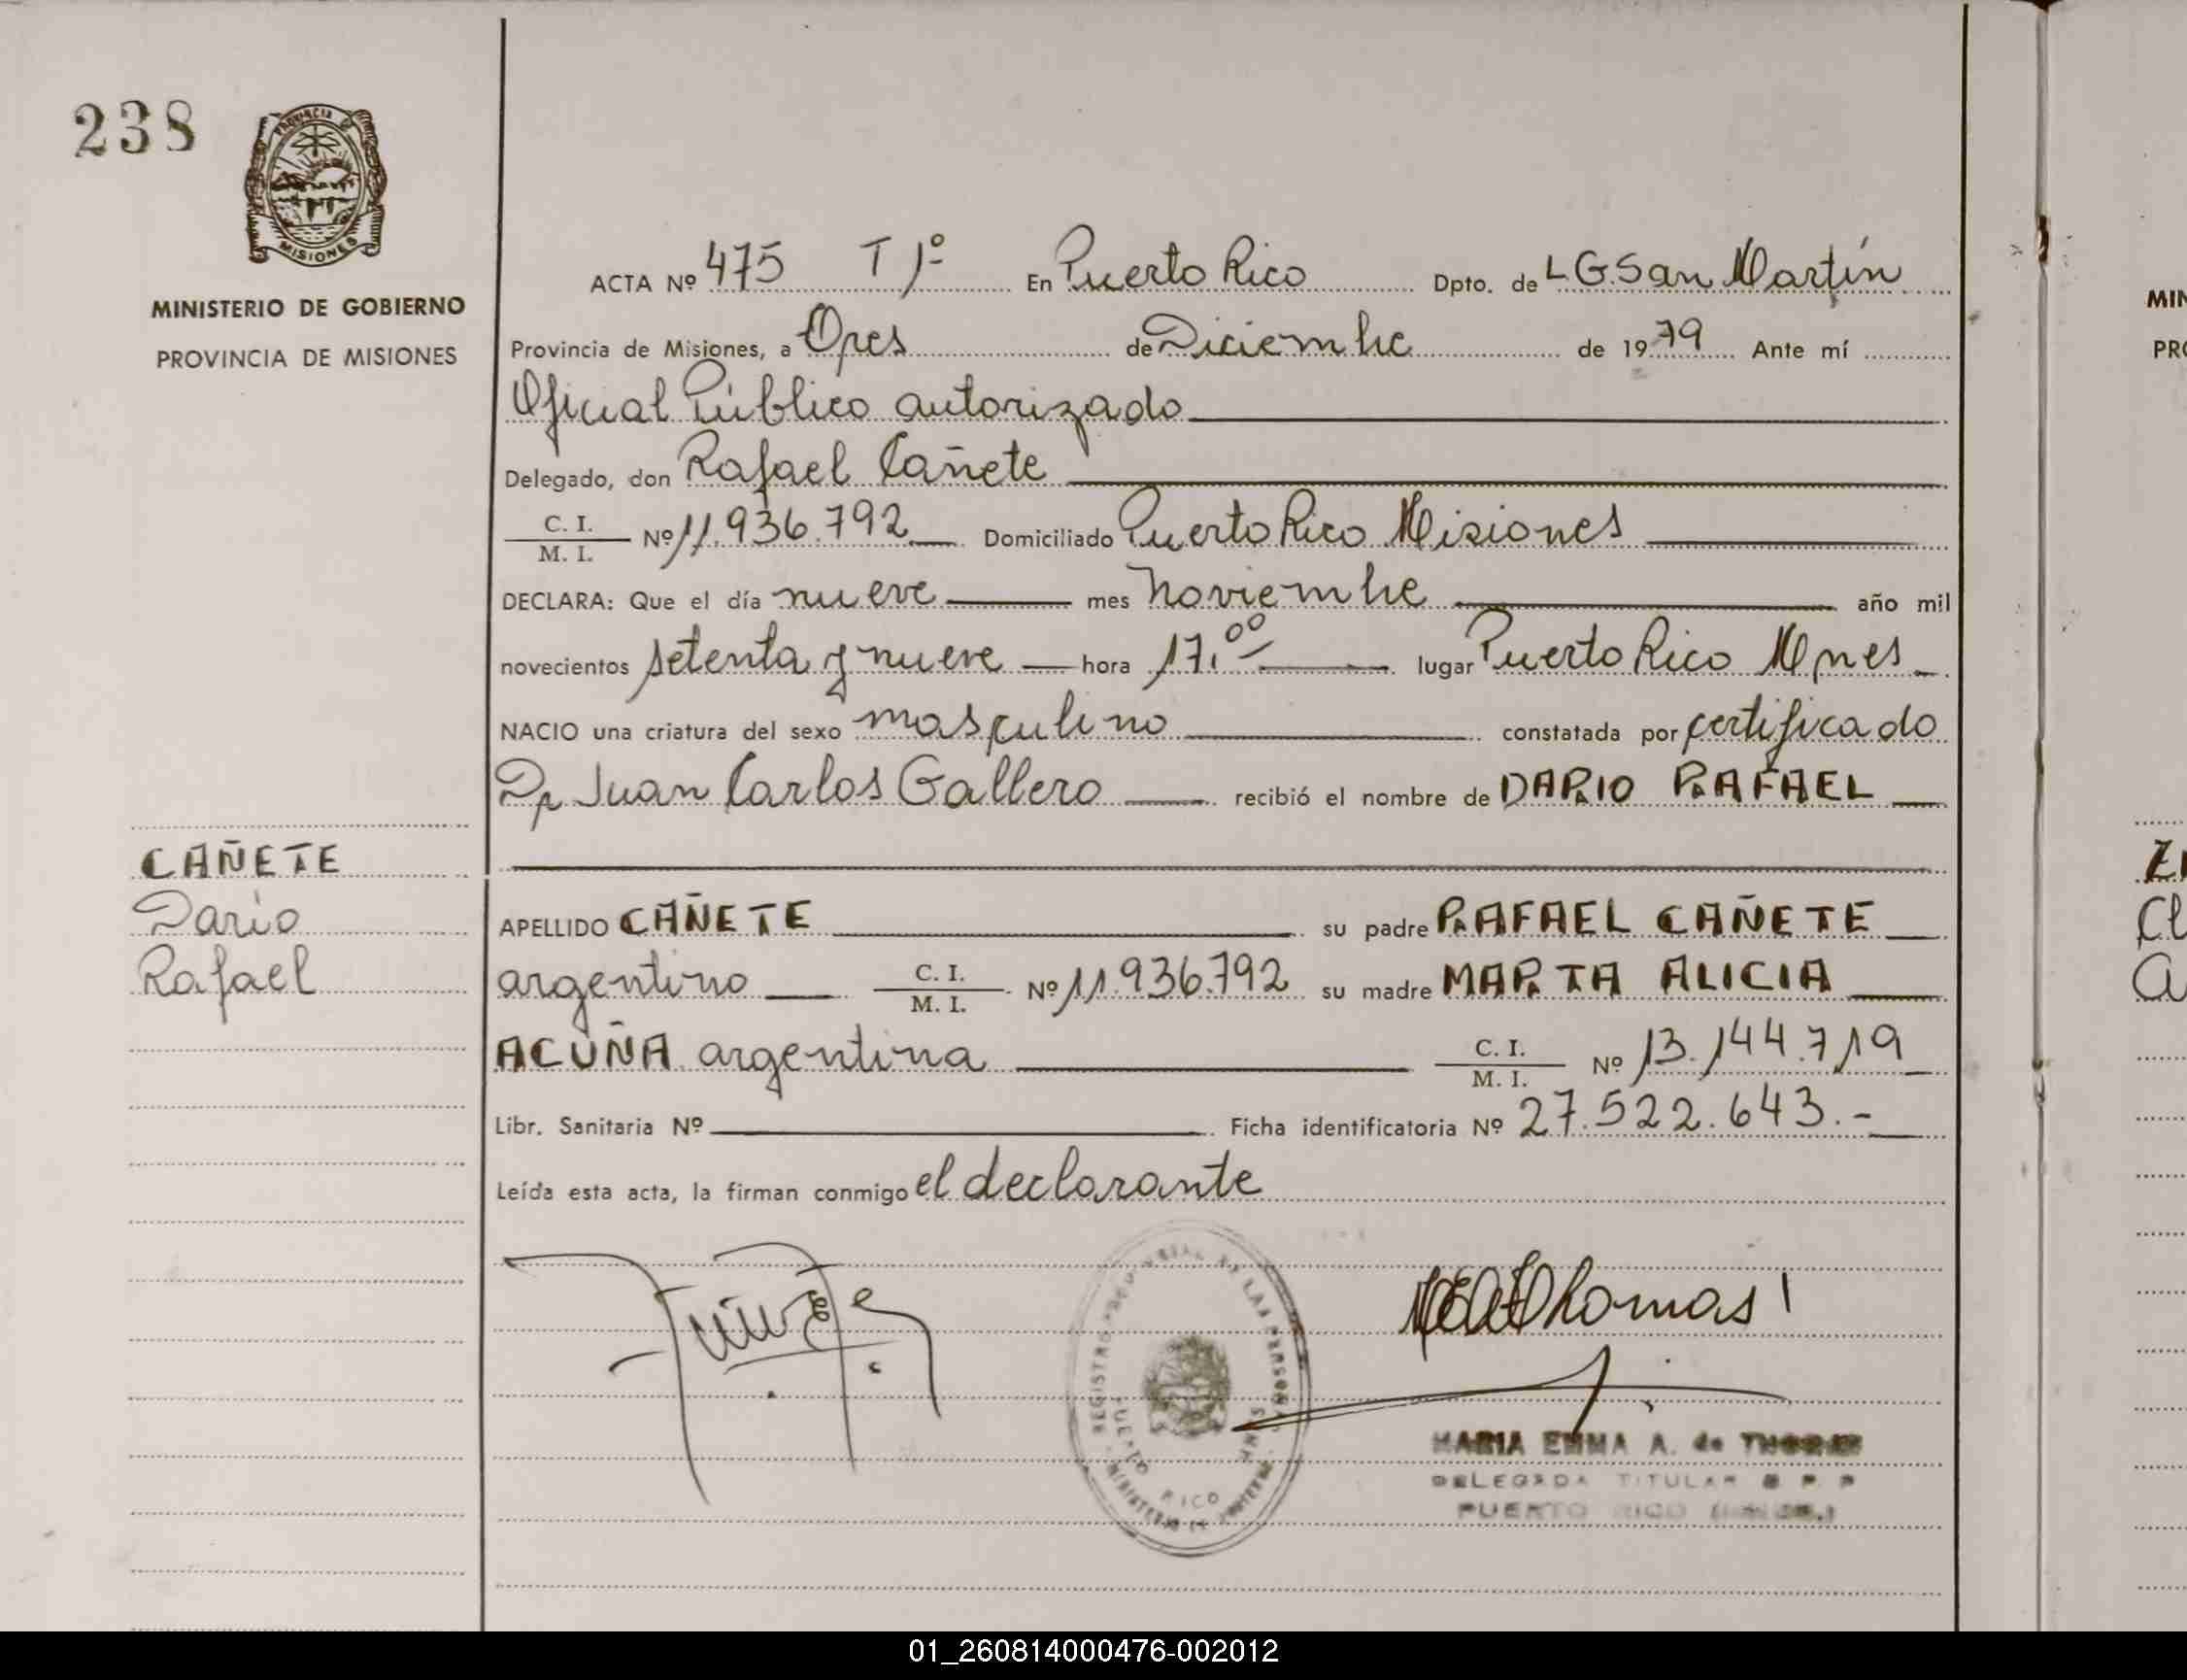 238
PROVINCIA
MISIONES
MINISTERIO DE GOBIERNO
PROVINCIA DE MISIONES
ACTA Nº 475 T 1º En Puerto Rico Dpto. de L G. San Martín
Provincia de Misiones, a Tres de Diciembre de 1979 Ante mí
Oficial Público autorizado
Delegado, don Rafael Cañete
C. I. / M. I. Nº 11.936.792 Domiciliado Puerto Rico Misiones
DECLARA: Que el día nueve mes noviembre año mil
novecientos setenta y nueve hora 17,00 lugar Puerto Rico Mnes
NACIO una criatura del sexo masculino constatada por certificado
Dr Juan Carlos Gallero recibió el nombre de DARIO RAFAEL
CAÑETE
Dario
Rafael
APELLIDO CAÑETE su padre RAFAEL CAÑETE
argentino C. I. / M. I. Nº 11.936.792 su madre MARTA ALICIA
ACUÑA argentina C. I. / M. I. Nº 13.144.719
Libr. Sanitaria Nº Ficha identificatoria Nº 27.522.643.-
Leída esta acta, la firman conmigo el declarante
REGISTRO DE LAS PERSONAS
PUERTO RICO MNES
MINISTERIO DE GOBIERNO
Thomas
MARIA EMMA A. de THOMAS
DELEGADA TITULAR R P P
PUERTO RICO
MIN
PRO
Cl
a
01_260814000476-002012